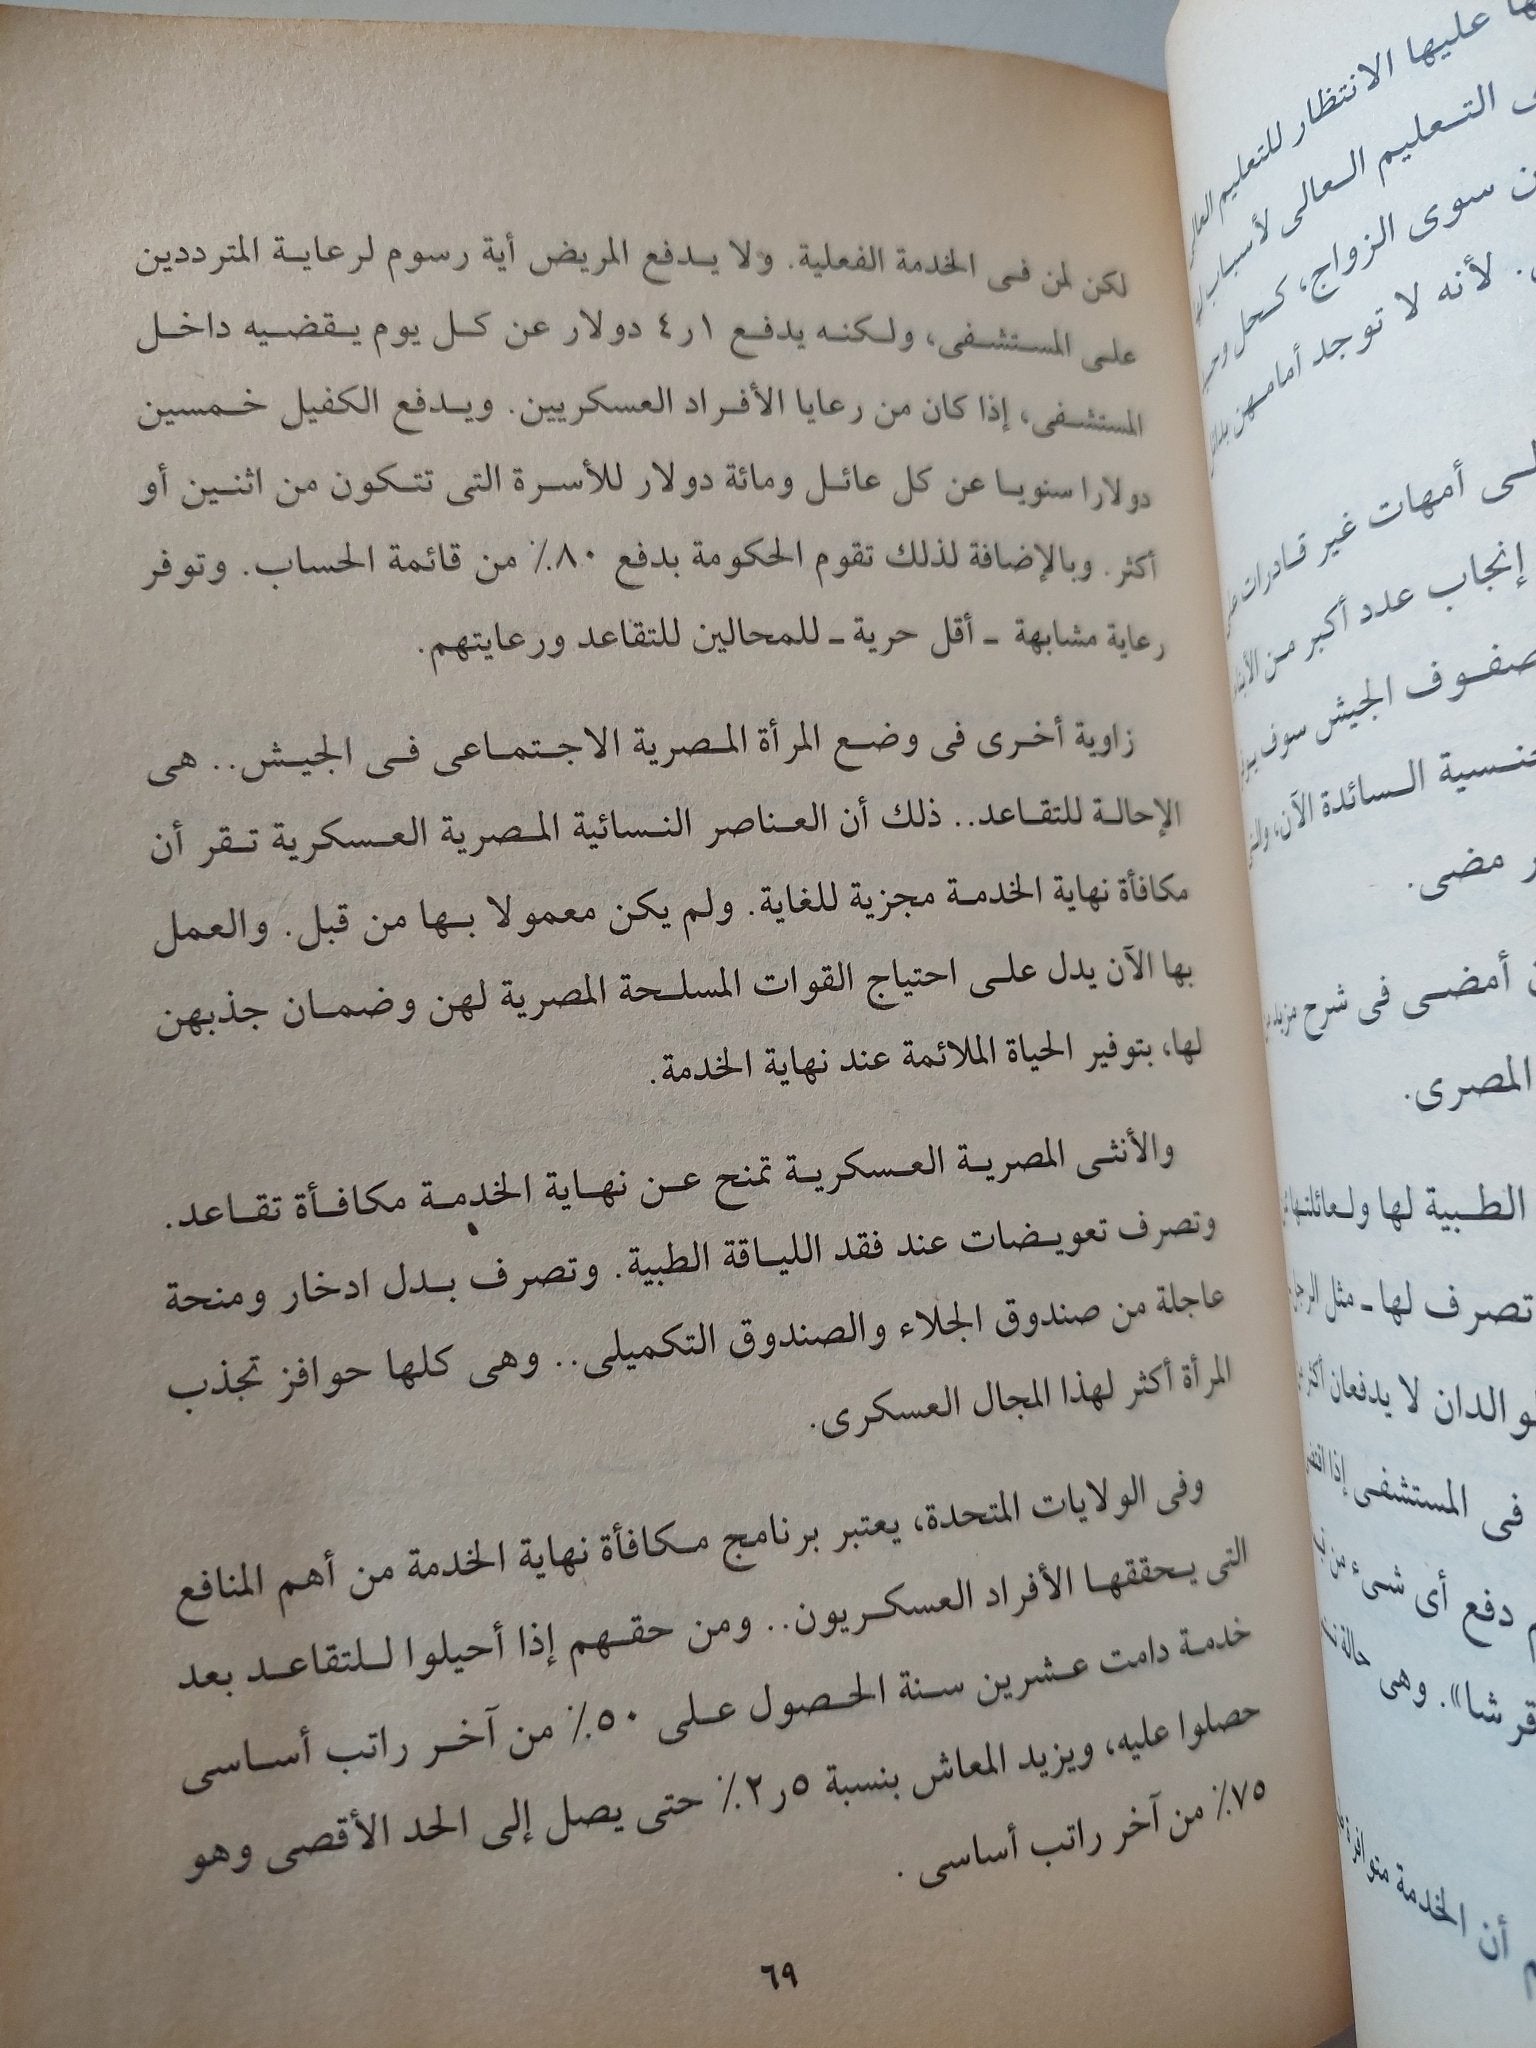 لكن لمن فى الخدمة الفعلية. ولا يدفع المريض أية رسوم لرعاية المترددين
على المستشفى، ولكنه يدفع ١ر٤ دولار عن كل يوم يقضيه داخل
المستشفى، إذا كان من رعايا الأفراد العسكريين. ويدفع الكفيل خمسين
دولارا سنويا عن كل عائل ومائة دولار للأسرة التى تتكون من اثنين أو
أكثر. وبالإضافة لذلك تقوم الحكومة بدفع ٨٠٪ من قائمة الحساب. وتوفر
رعاية مشابهة - أقل حرية - للمحالين للتقاعد ورعايتهم.
زاوية أخرى فى وضع المرأة المصرية الاجتماعى فى الجيش.. هى
الإحالة للتقاعد.. ذلك أن العناصر النسائية المصرية العسكرية تقر أن
مكافأة نهاية الخدمة مجزية للغاية. ولم يكن معمولا بها من قبل. والعمل
بها الآن يدل على احتياج القوات المسلحة المصرية لهن وضمان جذبهن
لها، بتوفير الحياة الملائمة عند نهاية الخدمة.
والأنثى المصرية العسكرية تمنح عن نهاية الخدمة مكافأة تقاعد.
وتصرف تعويضات عند فقد اللياقة الطبية. وتصرف بدل ادخار ومنحة
عاجلة من صندوق الجلاء والصندوق التكميلى.. وهى كلها حوافز تجذب
المرأة أكثر لهذا المجال العسكرى.
وفى الولايات المتحدة، يعتبر برنامج مكافأة نهاية الخدمة من أهم المنافع
التى يحققها الأفراد العسكريون.. ومن حقهم إذا أحيلوا للتقاعد بعد
خدمة دامت عشرين سنة الحصول على ٥٠٪ من آخر راتب أساسى
حصلوا عليه، ويزيد المعاش بنسبة ٥ر٢٪ حتى يصل إلى الحد الأقصى وهو
٧٥٪ من آخر راتب أساسى .
٦٩
عليها الانتظار للتعليم
التعليم العالى لأسباب
سوى الزواج، كحل
لأنه لا توجد أمامهن
أمهات غير قادرات
إنجاب عدد أكبر من
صفوف الجيش سوف
السائدة الآن،
مضى.
أمضى فى شرح مزيد
المصرى.
الطبية لها ولعائلتها
تصرف لها - مثل الرجل
لا يدفعان أكثر
فى المستشفى إذا
دفع أى شىء من
قرشا». وهى حالة
أن الخدمة